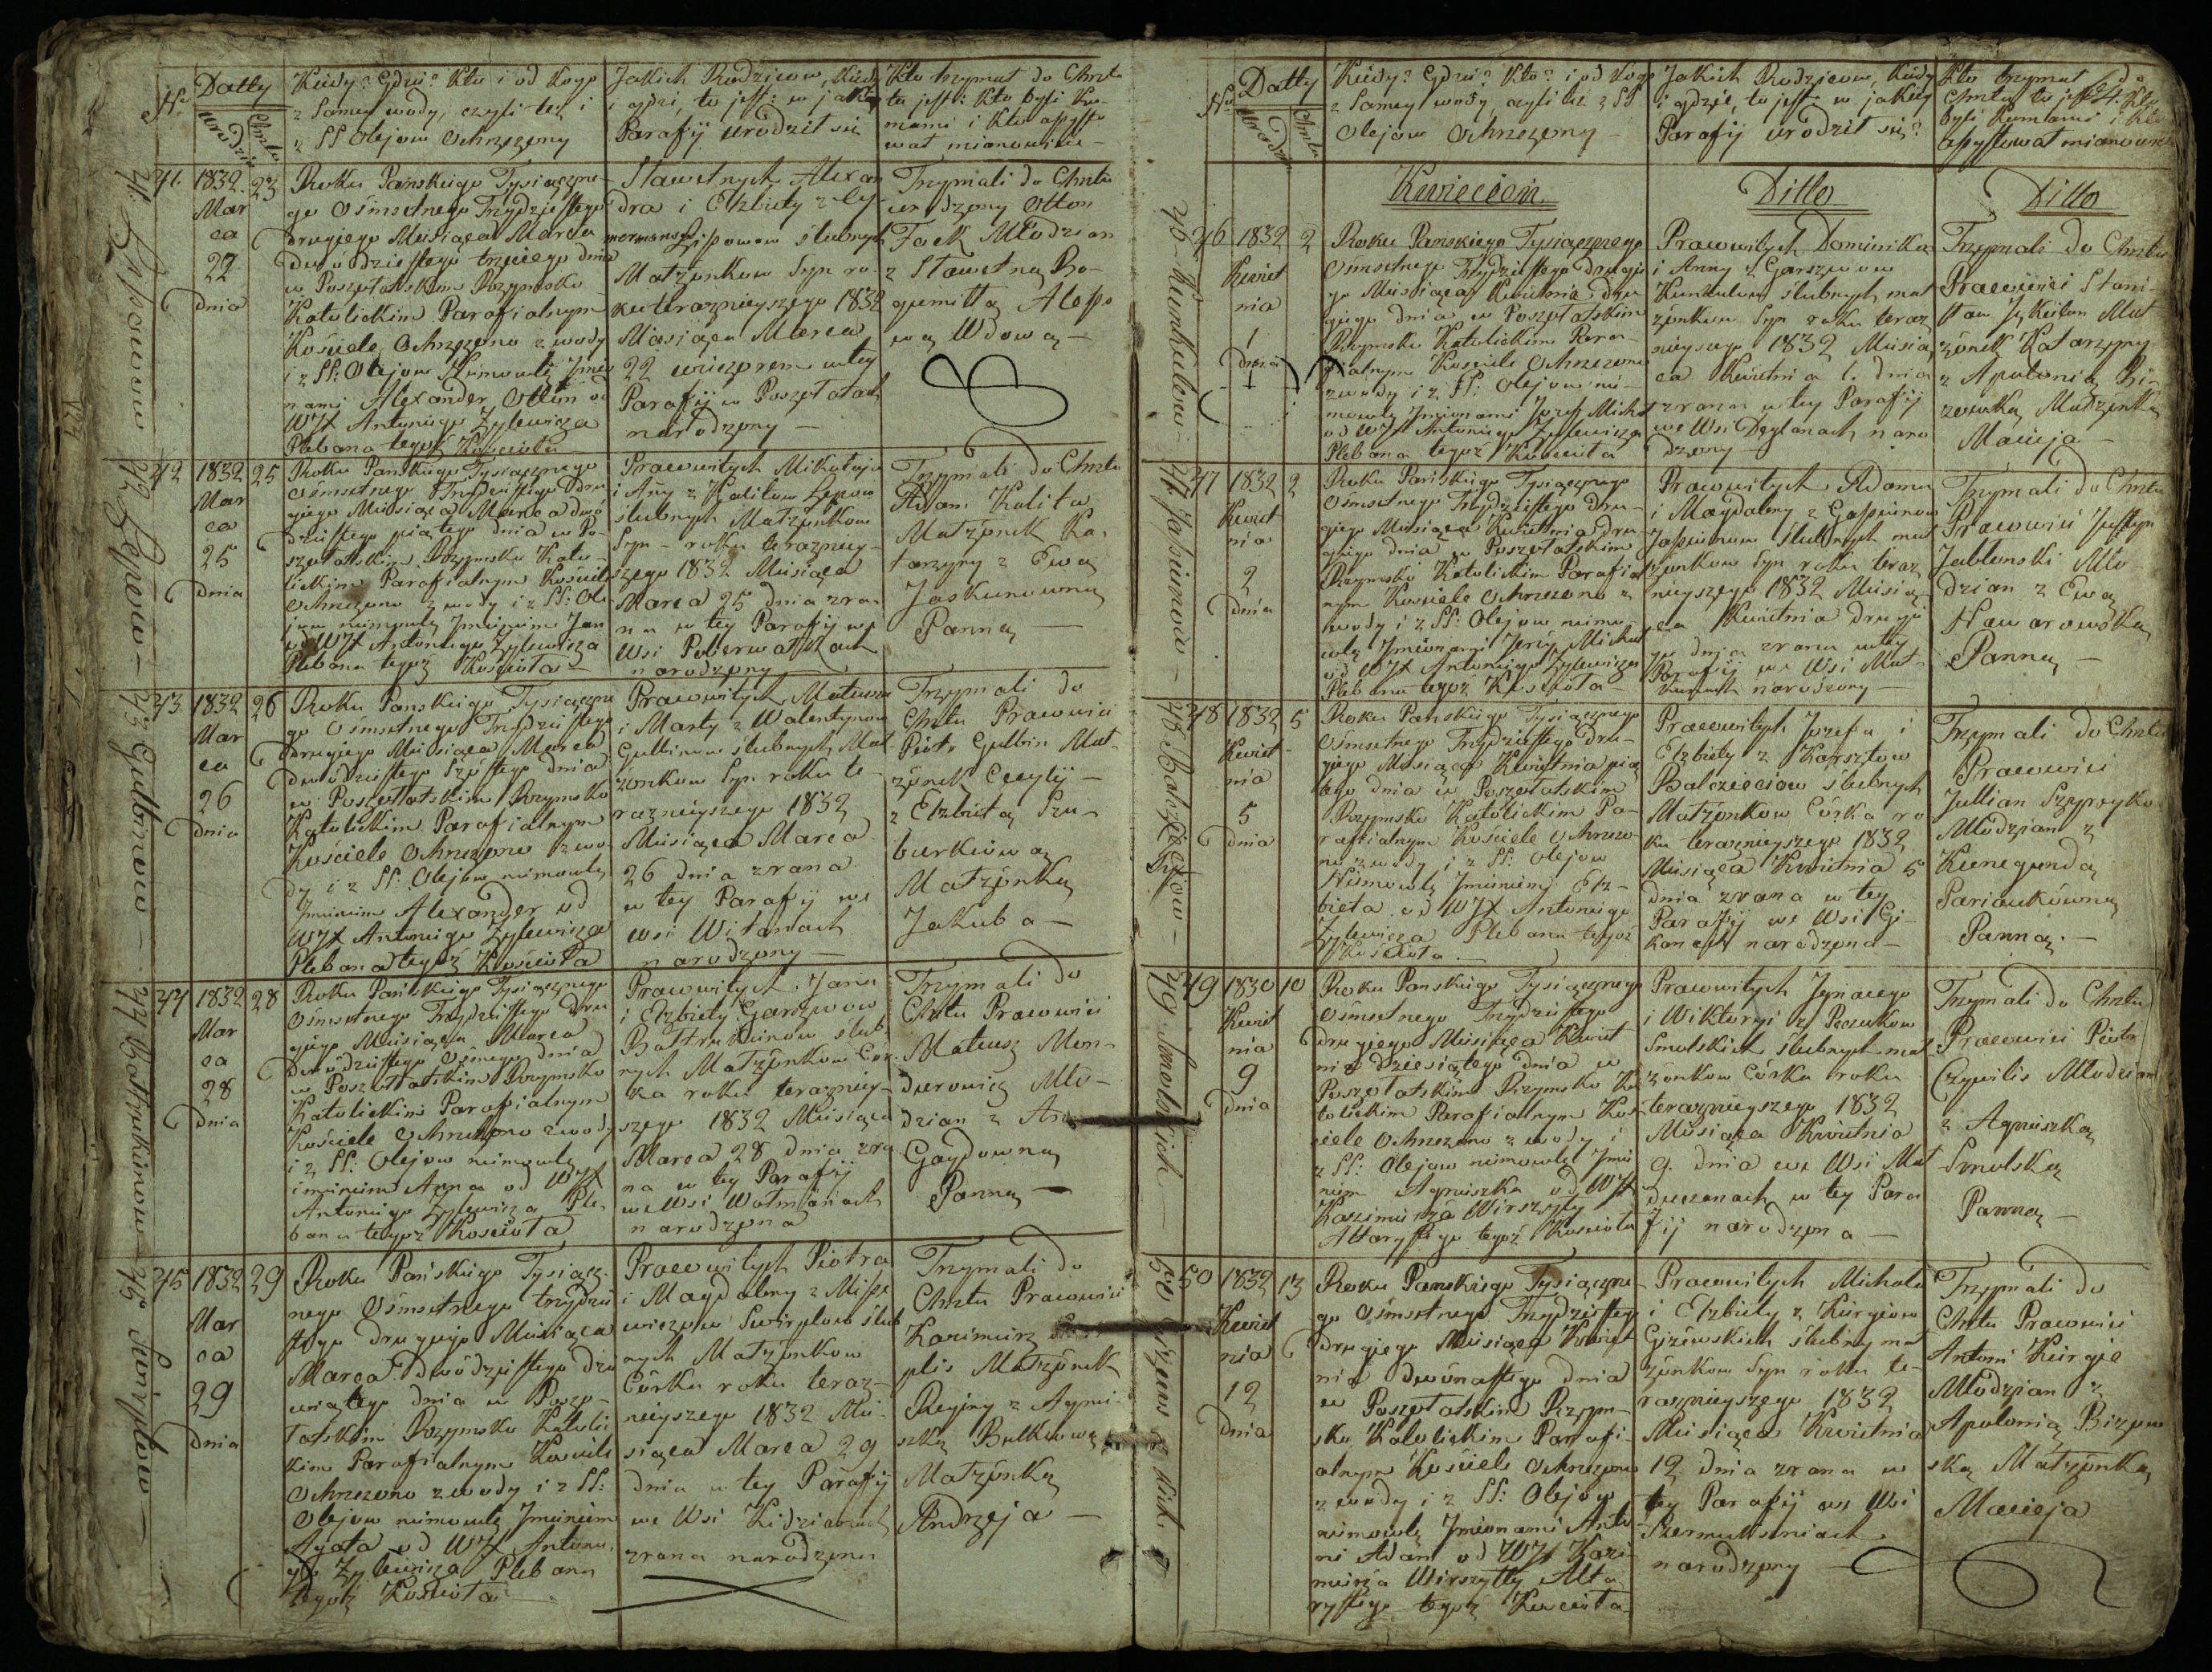 No
Datty
Urodzin
Chrztu
Kiedy? Gdzie? Kto i od kogo
z Samey wody, czyli też i
z SS Olejow Ochrzczony
Jakich Rodzicow, kiedy
i gdzie, to jest: w jakiey
Parafij urodził się
Kto trzymał do Chrztu
to jest: Kto byli Ku-
mami i Kto assysto
wał mianowicie
41.
1832
Mar
ca
22
dnia
23
Roku Pańskiego Tysiączne
go Ośmsetnego Trzydziestego
drugiego Miesiąca Marca
dwódziestego trzeciego dnia
w Poszołatskim Rzymsko
Katolickim Parafialnym
Kościele Ochrzczono z wody
i z SS: Olejow Niemowlę Imio
nami Alexander, Otton od
WJX Antoniego Żylewicza
Plebana tegoż Kościoła
Sławetnych Alexan
dra i Elżbiety z
ślubnych
Małżonkow Syn ro-
ku teraznieyszego 1832
Miesiąca Marca
22 wieczorem w tey
Parafij w Poszołatach
narodzony
Trzymali do Chrztu
urodzony Otton
Fock Młodzian
z Sławetną Bo-
gumiłłą
Wdową
42
1832
Mar
ca
25
dnia
25
Roku Pańskiego Tysiącznego
Ośmsetnego Trzydziestego dru
giego Miesiąca Marca dwó
dziestego piątego dnia w Po-
szołatskim Rzymsko Kato-
lickim Parafialnym Kościele
Ochrzczono z wody i z SS: Ole-
jow niemowlę Imieniem Jan
od WJX Antoniego Żylewicza
Plebana tegoż Kościoła
Prawowitych Mikołaja
i Anny z Kalitow Lepow
ślubnych Małżonkow
Syn roku terazniey-
szego 1832 Miesiąca
Marca 25 dnia zra-
na w tey Parafij we
Wsi Poberwałkach
narodzony
Trzymali do Chrztu
Adam Kalita
Małżonek Ka-
tarzyny z Ewą
Jaskunowną
Panną
43
1832
Mar
ca
26
dnia
26
Roku Pańskiego Tysiączne
go Ośmsetnego Trzydziestego
drugiego Miesiąca Marca
dwódziestego Szóstego dnia
w Poszołatskim Rzymsko
Katolickim Parafialnym
Kościele Ochrzczono z wo
dy i z SS: Olejow niemowlę
Imieniem Alexander od
WJX Antoniego Żylewicza
Plebana tegoż Kościoła
Prawowitych Mateusza
i Marty z Walentynow
Gulbinow ślubnych Mał-
żonkow Syn roku te-
raznieyszego 1832
Miesiąca Marca
26 dnia zrana
w tey Parafij we
wsi Witaniach
narodzony
Trzymali do
Chrztu Prawowici
Piotr Gulbin Mał-
żonek Cecylij
z Elżbietą Szu-
burkiową
Małżonką
Jakuba
44
1832
Mar
ca
28
dnia
28
Roku Pańskiego Tysiącznego
Ośmsetnego Trzydziestego dru
giego Miesiąca Marca
dwódziestego Osmego dnia
w Poszołatskim Rzymsko
Katolickim Parafialnym
Kościele Ochrzczono z wody
i z SS: Olejow niemowlę
imieniem Anna od WJX
Antoniego Żylewicza Ple-
bana tegoż Kościoła
Prawowitych Jana
i Elżbiety Garszwow
Bałtrukinow ślub-
nych Małżonkow Cór-
ka roku terazniey-
szego 1832 Miesiąca
Marca 28 dnia zra
na w tey Parafij
we Wsi Wołmianach
narodzona
Trzymali do
Chrztu Prawowici
Mateusz Mon-
durowicz Mło-
dzian z
Gaydowną
Panną
45
1832
Mar
ca
29
dnia
29
Roku Pańskiego Tysiącz-
nego Ośmsetnego trzydzie
stego drugiego Miesiąca
Marca dwódziestego dzie
wiątego dnia w Poszo-
łatskim Rzymsko Katolic
kim Parafialnym Kościele
Ochrzczono z wody i z SS:
Olejow niemowlę Imieniem
Agata od WJX Antonie
go Żylewicza Plebana
tegoż Kościoła
Prawowitych Piotra
i Magdaleny z
Swirplow ślub
nych Małżonkow
Córka roku teraz-
nieyszego 1832 Mie-
siąca Marca 29
dnia w tey Parafij
we Wsi Kidzianach
zrana narodzona
Trzymali do
Chrztu Prawowici
Kazimierz
plis Małżonek
Reginy z Agnie-
szką Butkiową
Małżonką
Andrzeja
42 Lepow
43 Gulbinow
44 Bałtrukinow
45 Swirplow
No
Datty
Urodzin
Chrztu
Kiedy? Gdzie? Kto? i od Kogo
z Samey wody, czyli też z SS
Olejow Ochrzczony
Jakich Rodzicow, kiedy
i gdzie, to jest w jakiey
Parafij urodził się?
Kto trzymał do
Chrztu, to jest: Kto
byli Kumami i Kto
assystował mianowicie
Kwiecień
Ditto
Ditto
46
1832
Kwiet
nia
1
dnia
2
Roku Pańskiego Tysiącznego
Ośmsetnego Trzydziestego drugie
go Miesiąca Kwietnia dru
giego dnia w Poszołatskim
Rzymsko Katolickim Para-
fialnym Kościele Ochrzczono
z wody i z SS: Olejow nie-
mowlę Imionami Jozef, Michał
od WJX Antoniego Żylewicza
Plebana tegoż Kościoła
Prawowitych Dominika
i Anny z Garszwow
Kunkulow ślubnych mał
żonkow Syn roku teraz
nieyszego 1832 Miesią
ca Kwietnia 1. dnia
zrana w tey Parafij
we Wsi Deglanach naro
dzony
Trzymali do Chrztu
Prawowici Stani-
sław Jzkielan Mał-
żonek Katarzyny
z Apolonią Bi-
zewską Małżonką
Macieja
47
1832
Kwiet
nia
2
dnia
2
Roku Pańskiego Tysiącznego
Ośmsetnego Trzydziestego dru-
giego Miesiąca Kwietnia dru
giego dnia w Poszołatskim
Rzymsko Katolickim Parafial
nym Kościele Ochrzczono z
wody i z SS: Olejow niemo
wlę Imionami Jerzy, Michał
od WJX Antoniego Żylewicza
Plebana tegoż Kościoła
Prawowitych Adama
i Magdaleny z Gasiunow
Jasiunow ślubnych mał
żonkow Syn roku teraz
nieyszego 1832 Miesią-
ca Kwietnia drugie
go dnia zrana w tey
Parafij we Wsi
narodzony
Trzymali do Chrztu
Prawowici Justyn
Jabłonski Mło
dzian z Ewą
Nawarowską
Panną
48
1832
Kwiet
nia
5
dnia
5
Roku Pańskiego Tysiącznego
Ośmsetnego Trzydziestego dru-
giego Miesiąca Kwietnia pią
tego dnia w Poszołatskim
Rzymsko Katolickim Pa-
rafialnym Kościele Ochrzczo
no z wody i z SS: Olejow
Niemowlę Imieniem Elż-
bieta od WJX Antoniego
Żylewicza Plebana tegoż
Kościoła
Prawowitych Jozefa i
Elżbiety z Karsztow
Balczeciow ślubnych
Małżonkow Córka ro
ku teraznieyszego 1832
Miesiąca Kwietnia 5
dnia zrana w tey
Parafij we Wsi Gi-
kaniach narodzona
Trzymali do Chrztu
Prawowici
Jullian Szyrzyko
Młodzian z
Kunegundą
Pariaukówną
Panną
49
1830
Kwiet
nia
9
dnia
10
Roku Pańskiego Tysiącznego
Ośmsetnego Trzydziestego
drugiego Miesiąca Kwiet
nia dziesiątego dnia w
Poszołatskim Rzymsko Ka
tolickim Parafialnym Koś-
ciele Ochrzczono z wody i
z SS: Olejow niemowlę Imie
niem Agnieszka od WJX
Kazimierza Wirszyłły
Altarystego tegoż Kościoła
Prawowitych Ignacego
i Wiktoryi z Peczukow
Smolskich ślubnych mał
żonkow Córka roku
teraznieyszego 1832
Miesiąca Kwietnia
9. dnia we Wsi Mał
duezanach w tey Para
fij narodzona
Trzymali do Chrztu
Prawowici Piotr
Czywilis Młodzian
z Agnieszką
Smolską
Panną
50
1832
Kwiet
nia
12
dnia
13
Roku Pańskiego Tysiączne
go Ośmsetnego Trzydziestego
drugiego Miesiąca Kwiet
nia dwónastego dnia
w Poszołatskim Rzym-
sko Katolickim Parafi-
alnym Kościele Ochrzczono
z wody i z SS: Olejow
niemowlę Imionami Anto
ni Adam od WJX Kazi-
mierza Wirszyłły Alta
rystego tegoż Kościoła
Prawowitych Michała
i Elżbiety z Kurgiow
Giżewskich ślubnych mał
żonkow Syn roku te-
raznieyszego 1832
Miesiąca Kwietnia
12 dnia zrana w
tey Parafij we Wsi
Szermukszniach
narodzony
Trzymali do
Chrztu Prawowici
Antoni Kurgie
Młodzian z
Apolonią Bizew
ską Małżonką
Macieja
46 Kunkulow
47 Jasiunow
48 Balczeciow
49 Smolskich
50